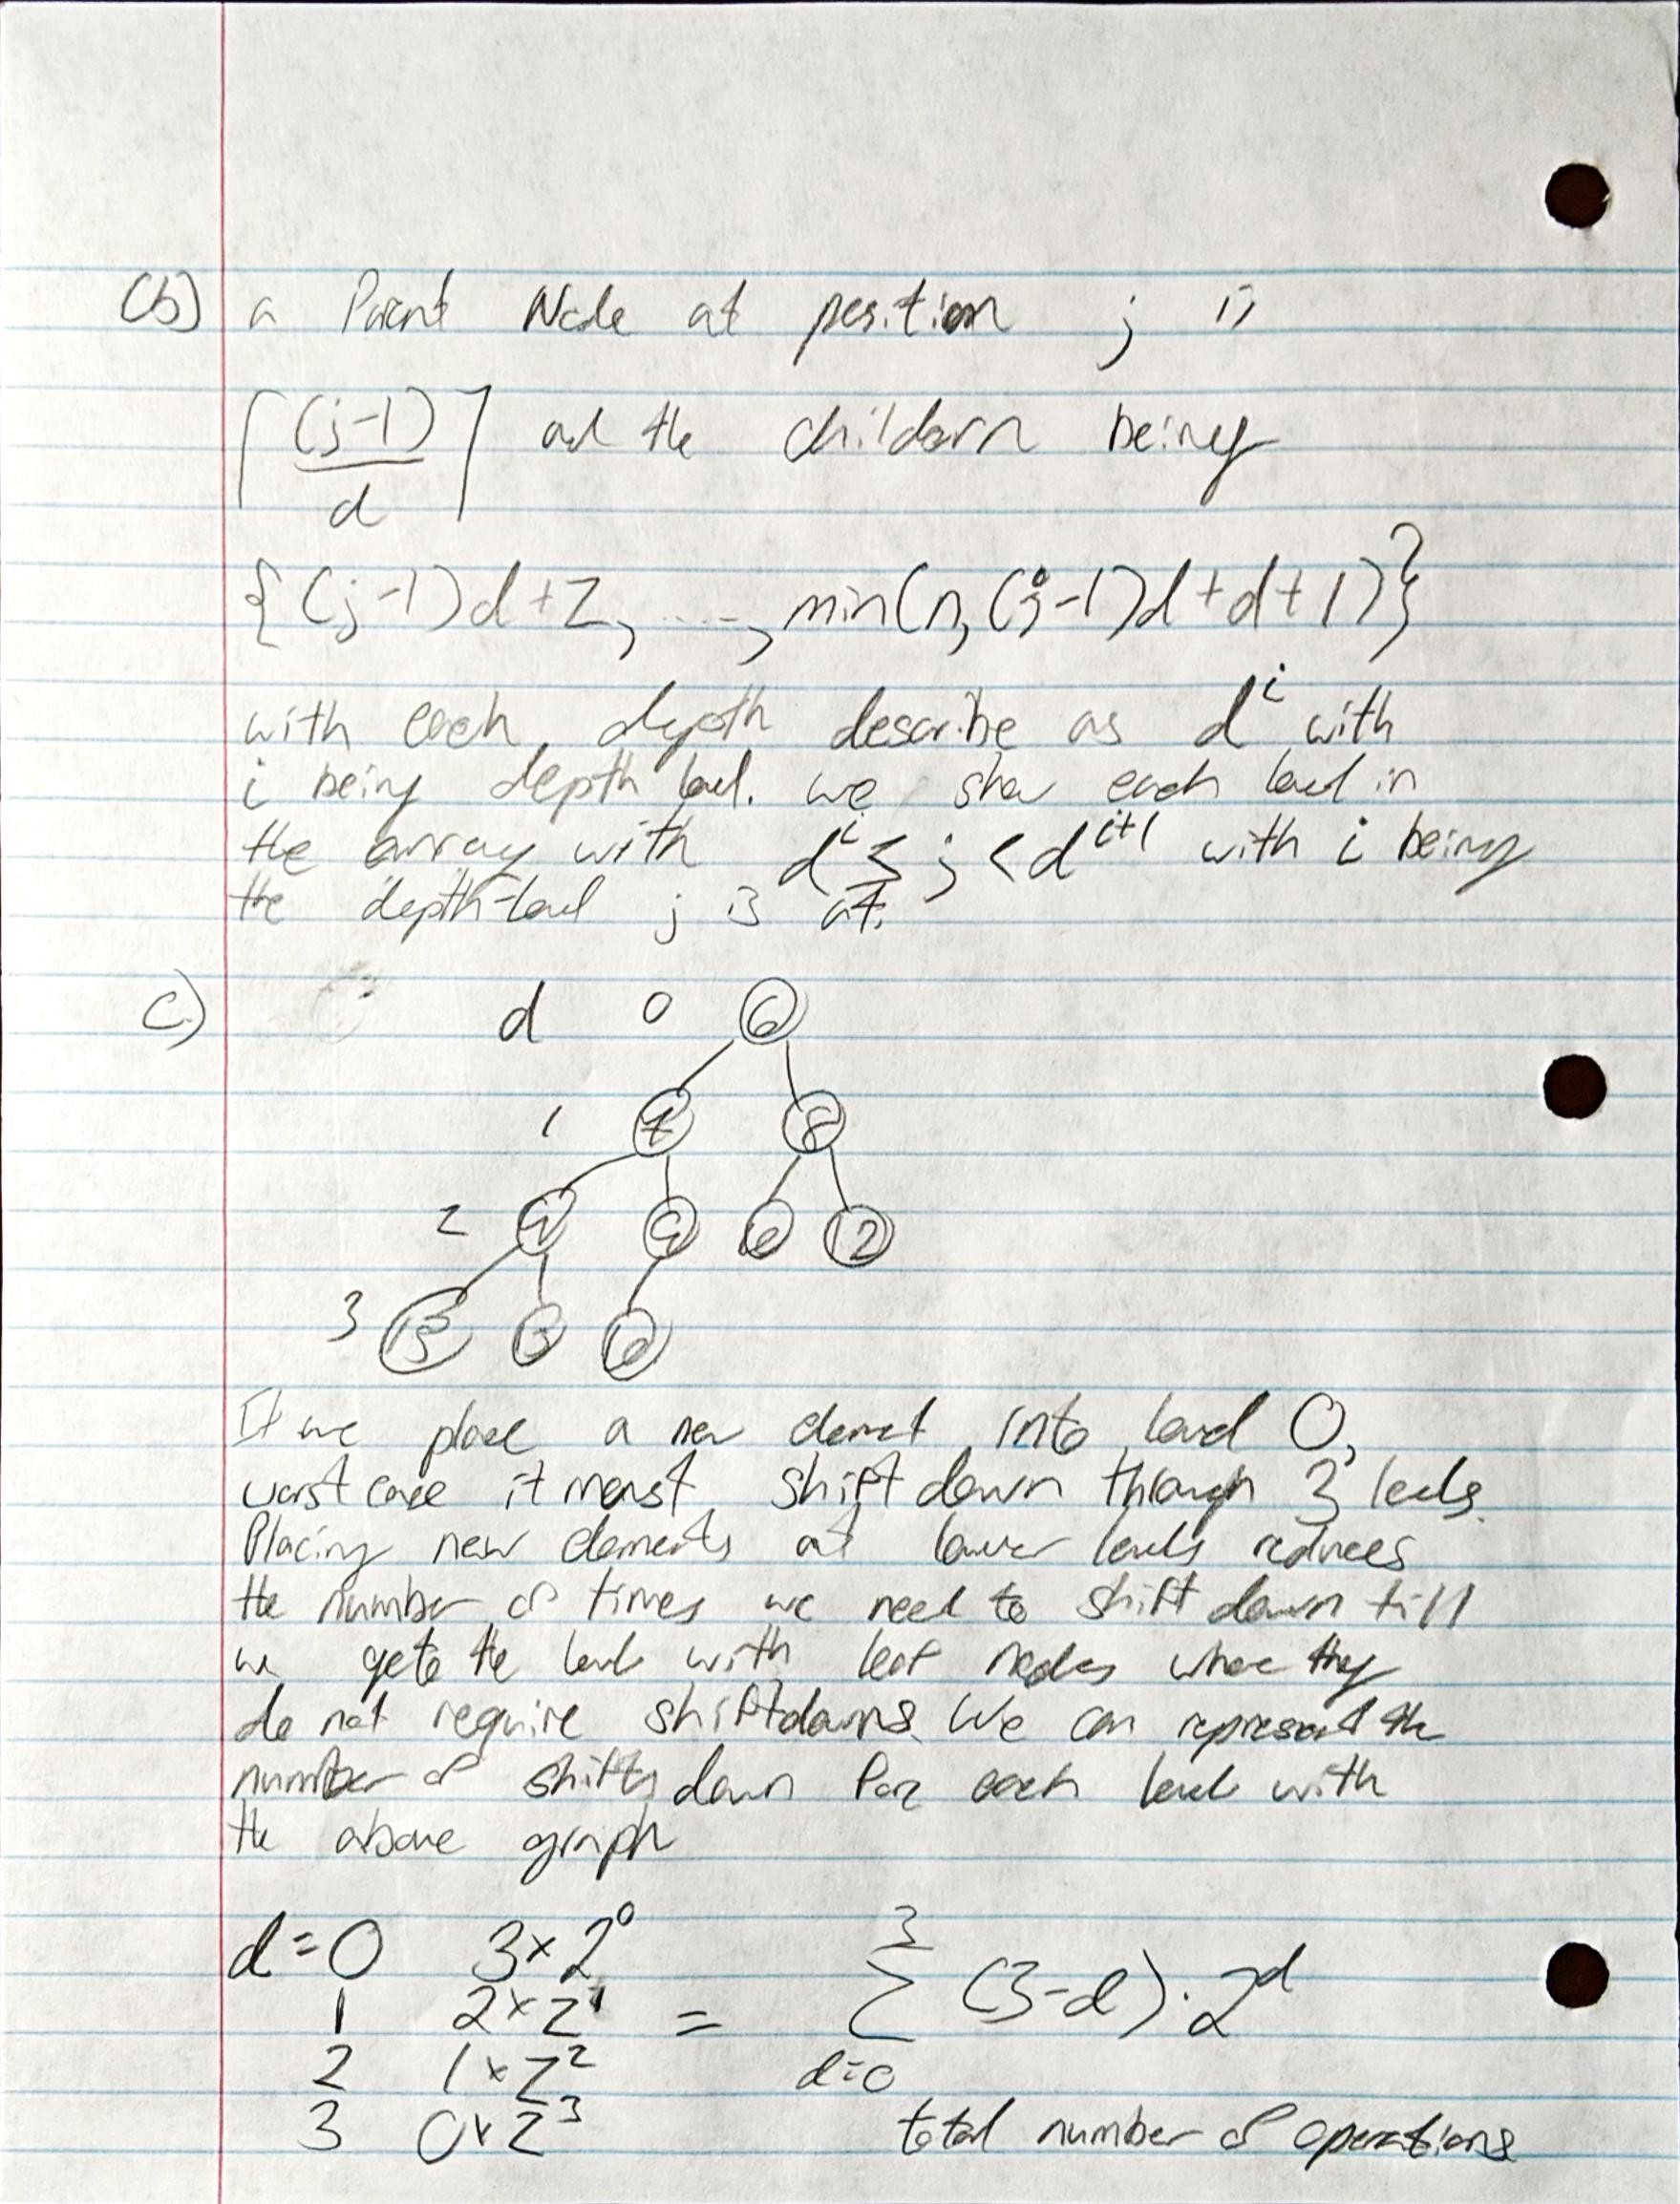 (b) a Parent Node at position j is
⌈(j-1)/d⌉ and the childern being
{(j-1)d+2, ...., min(n, (j-1)d+d+1)}
with each depth describe as d^i with
i being depth level. we show each level in
the array with d^i ≤ j < d^{i+1} with i being
the depth-level j is at.
C.) d 0 6
1 7 8
2 9 12
3 13
If we place a new element into level 0,
worst case it must shift down through 3 levels.
Placing new elements at lower levels reduces
the number of times we need to shift down till
we get to the level with leaf nodes where they
do not require shiftdowns. We can represent the
number of shifts down for each level with
the above graph
d=0 3×2^0
1 2×2^1 = \sum_{d=0}^{3} (3-d)·2^d
2 1×2^2
3 0×2^3 total number of operations